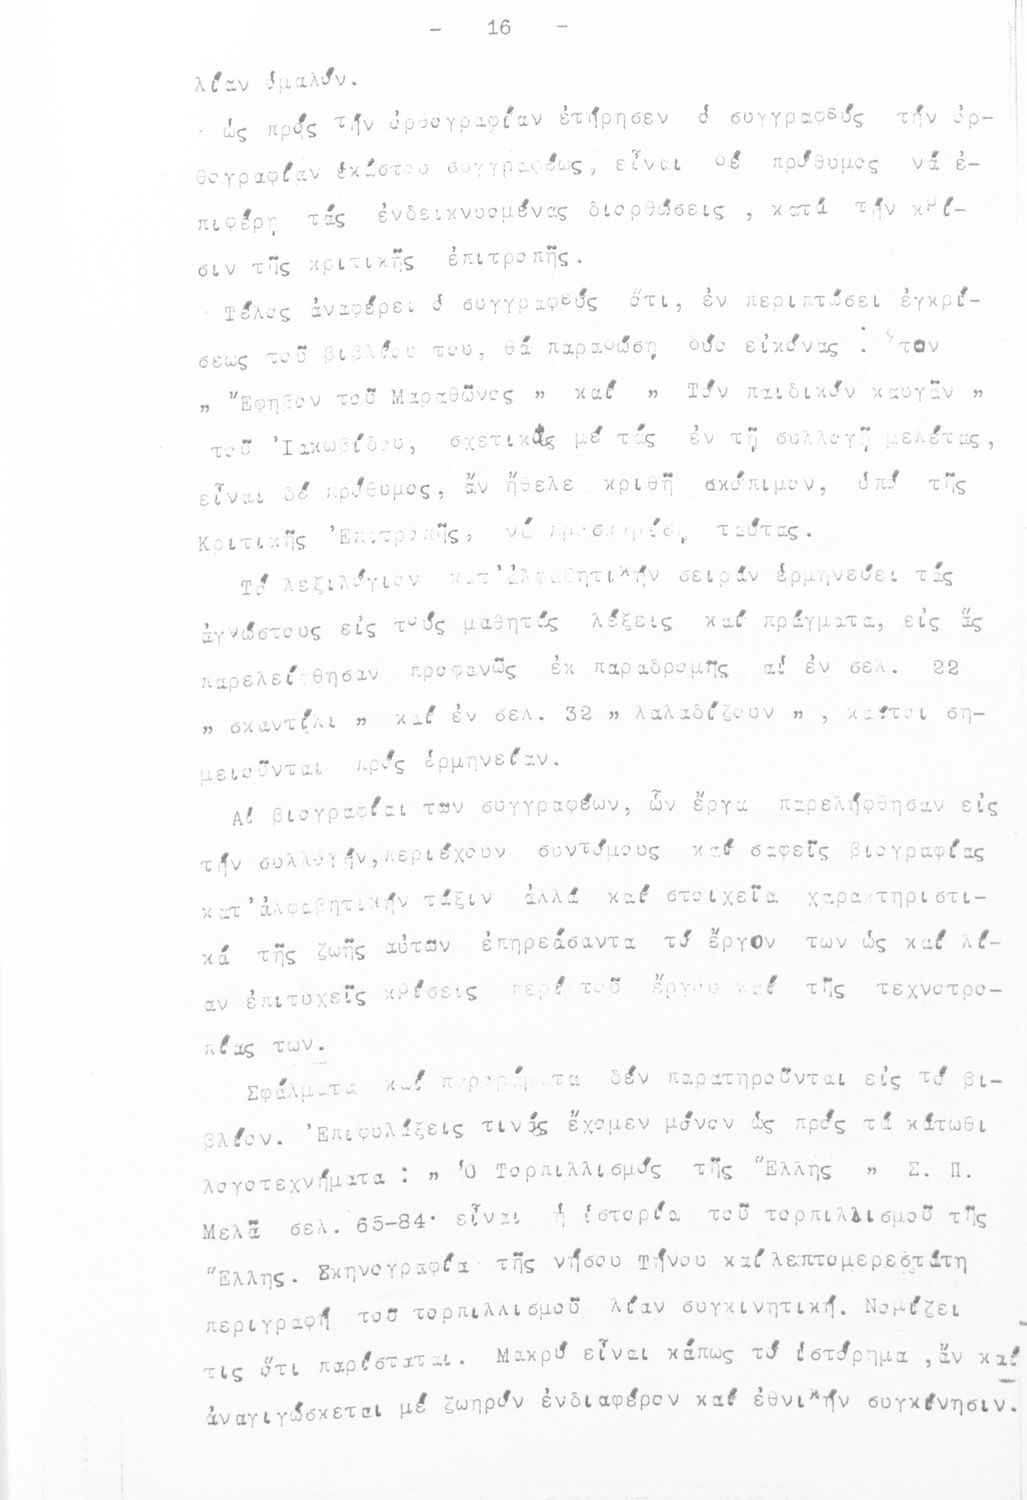 - 16 -
λίαν ὁμαλόν.
ὡς πρός τήν ὀρθογραφίαν ἐτήρησεν ὁ συγγραφεύς τήν ὀρ-
θογραφίαν ἑκάστου συγγραφέως, εἶναι δέ πρόθυμος νά ἐ-
πιφέρῃ τάς ἐνδεικνυομένας διορθώσεις , κατά τήν κρί-
σιν τῆς κριτικῆς ἐπιτροπῆς.
Τέλος ἀναφέρει ὁ συγγραφεύς ὅτι, ἐν περιπτώσει ἐγκρί-
σεως τοῦ βιβλίου του, θά παραδώσῃ δύο εἰκόνας : τον
" Ἔφηβον τοῦ Μαραθῶνος " καί " Τόν παιδικόν καυγᾶν "
τοῦ Ἰακωβίδου, σχετικάς μέ τάς ἐν τῇ συλλογῇ μελέτας,
εἶναι δέ πρόθυμος, ἄν ἤθελε κριθῆ σκόπιμον, ὑπό τῆς
Κριτικῆς Ἐπιτροπῆς, νά προσκομίσῃ ταύτας.
Τό λεξιλόγιον κατ'ἀλφαβητικήν σειράν ἑρμηνεύει τάς
ἀγνώστους εἰς τούς μαθητάς λέξεις καί πράγματα, εἰς ἅς
παρελείφθησαν προφανῶς ἐκ παραδρομῆς αἱ ἐν σελ. 22
" σκαντζλι " καί ἐν σελ. 32 " λαλαδίζουν " , καίτοι ση-
μειοῦνται πρός ἑρμηνείαν.
Αἱ βιογραφίαι των συγγραφέων, ὧν ἔργα παρελήφθησαν εἰς
τήν συλλογήν, περιέχουν συντόμους καί σαφεῖς βιογραφίας
κατ'ἀλφαβητικήν τάξιν ἀλλά καί στοιχεῖα χαρακτηριστι-
κά τῆς ζωῆς αὐτῶν ἐπηρεάσαντα τό ἔργον των ὡς καί λί-
αν ἐπιτυχεῖς κρίσεις περί τοῦ ἔργου καί τῆς τεχνοτρο-
πίας των.
Σφάλματα καί παροράματα δέν παρατηροῦνται εἰς τό βι-
βλίον. Ἐπιφυλάξεις τινάς ἔχομεν μόνον ὡς πρός τά κάτωθι
λογοτεχνήματα : " Ὁ Τορπιλλισμός τῆς Ἕλλης " Σ. Π.
Μελᾶ σελ. 65-84· εἶναι ἡ ἱστορία τοῦ τορπιλλισμοῦ τῆς
Ἕλλης. Σκηνογραφία τῆς νήσου Τήνου καί λεπτομερεστάτη
περιγραφή τοῦ τορπιλλισμοῦ λίαν συγκινητική. Νομίζει
τις ὅτι παρίσταται. Μακρύ εἶναι κάπως τό ἱστόρημα ,ἄν καί
ἀναγιγώσκεται μέ ζωηρόν ἐνδιαφέρον καί ἐθνικήν συγκίνησιν.